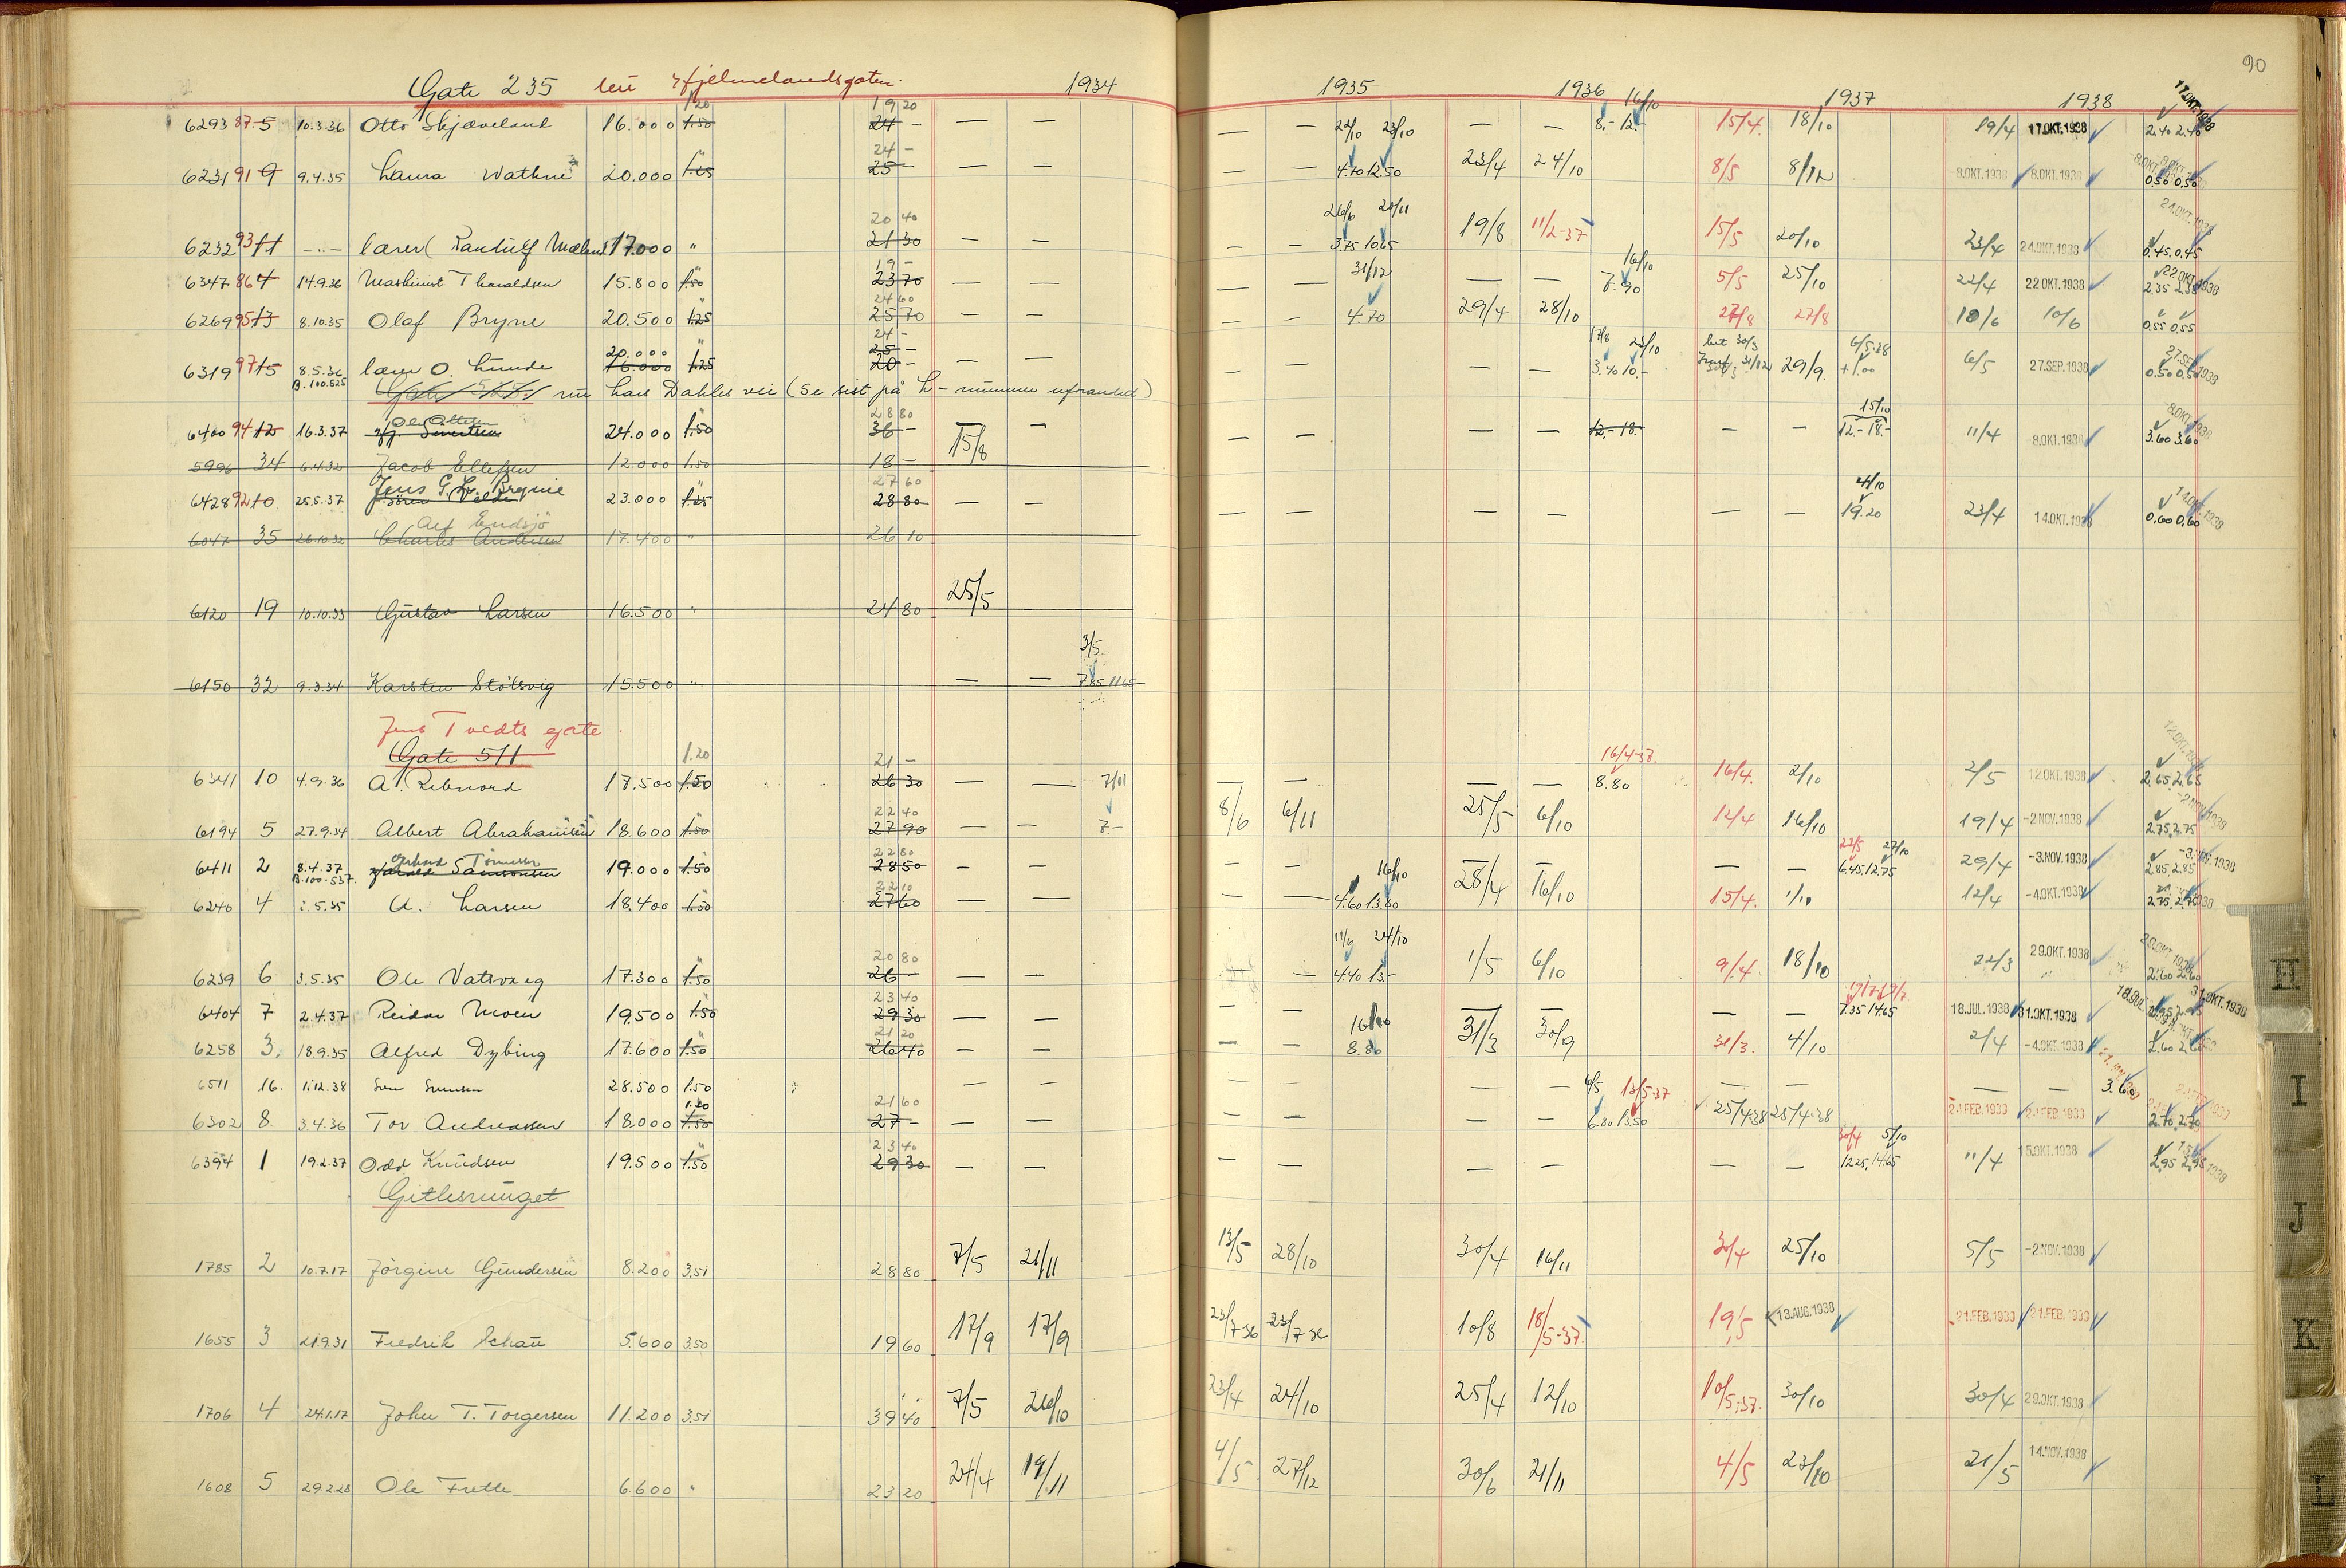 90
Gate 235 Hjelmelandsgaten. 1934 1935 1936 1937 1938
1.20 19 20 16/10 17.OKT.1938
6293 87 5 10.3.36 Otto Skjæveland 16.000 1.50 24 - — — — — 22/10 23/10 — — 8.- 12.- 15/4. 18/10 19/4 17.OKT.1938 2.40 2.40
24 -
6231 91 9 9.4.35 Laura Wathne 20.000 1.25 25 - — — — — 4.70 12.50 23/4 24/10 8/5 8/12 8.OKT.1938 8.OKT.1938 0.50 0.50
20 40 26/6 24.OKT.1938
6232 93 11 -"- lærer Mæland 17.000 " 21 30 — — — — 3.75 10.65 19/8 11/2-37 15/5 20/10 23/4 24.OKT.1938 0.45 0.45
19 - 31/12 16/10
6347 86 4 14.9.36 Maskinist Tharaldsen 15.800 1.50 23 70 — — — — — — 7.90 5/5 25/10 22/4 22 OKT.1938 2.35 2.35
24 60
6269 95 13 8.10.35 Olaf Bryne 20.500 1.25 25 70 — — — — 4.70 29/4 28/10 27/8 27/8 10/6 10/6 0.55 0.55
24 -
20.000 25 - 17/8 23/10 6/5-38
6319 97 15 8.5.36 lærer O. Lunde 16.000 1.25 20 - — — — — — — 3.40 10.- 29/9. +1.00 6/5 27.SEP.1938 0.50 0.50
B.100.525 nu Lars Dahles vei (Se sist på L - nummer uforandret)
Ole Ottesen 28 80 15/10 8.OKT.1938
6400 94 12 16.3.37 Sivertsen 24.000 1.50 36 - 15/8 — — — — — 12.- 18.- — — 12.- 18.- 11/4 8.OKT.1938 3.60 3.60
5996 34 6.4.32 Jacob Ellefsen 12.000 1.50 18 -
Jens G. Bryne 27 60 4/10
6428 92 10 25.5.37 23.000 1.25 28 80 — — — — — — — — 19.20 23/4 14.OKT.1938 0.60 0.60
Alf Endsjö
6047 35 26.10.32 Charles Andersen 17.400 " 26 10
25/5
6120 19 10.10.33 Gustav Larsen 16.500 " 24 80
3/5.
6150 32 9.3.34 Karsten Stölsvig 15.500 " — — 7.85 11.65
Jens Tvedts gate
Gate 511 1.20 21 - 16/4-37. 12.OKT.1938
6341 10 4.9.36 A. Rebnord 17.500 1.50 26 30 — — 7/11 — — — — 8.80 16/4. 2/10 2/5 12.OKT.1938 2.65 2.65
22 40
6194 5 27.9.34 Albert Abrahamsen 18.600 1.50 27 90 — — 7.- 8/6 6/11 25/5 6/10 12/4 16/10 19/4 -2 NOV.1938 2.75 2.75
Gerhard Tönnessen 22 80 27/10
6411 2 8.4.37 Samsonsen 19.000 1.50 28 50 — — — — — — 6.45 12.75 29/4 -3.NOV.1938 2.85 2.85
B.100.537. 22 10 16/10
6240 4 A. Larsen 18.400 1.50 27 60 — — — — 4.60 13.80 28/4 16/10 15/4. 1/10 12/4 -4.OKT.1938 2.75 2.75
20 80 11/6 24/10 29.OKT.1938
6239 6 3.5.35 Ole Vatsvaag 17.300 1.50 26 - — — — 4.40 13.- 1/5 6/10 9/4. 18/10 22/3 2.60 2.60
23 40 31.OKT.1938
6404 7 2.4.37 Reidar Moen 19.500 1.50 29 30 — — — — — — — — 7.35 14.65 18.JUL.1938 31.OKT.1938
21 20
6258 3. 18.9.35 Alfred Dybing 17.600 1.50 26 40 — — — — 8.80 31/3 30/9 31/3. 4/10 2/4 -4.OKT.1938 2.60
6511 16. 1.12.38 Sven Svensen 28.500 1.50 — — — — — — 6/5 13/5-37 — — — — 3.60
1.20 21 60
6302 8. 3.4.36 Tor Andreassen 18.000 1.50 27 - — — — — — — 6.80 13.50 25/4-38 25/4-38 2.70 2.70
23 40 30/4 5/10
6394 1 19.2.37 Odd Knudsen 19.500 1.50 29 30 — — — — — — — — 12.25, 14.65 11/4 15.OKT.1938 2.95 2.95
Gitlesrunget
1785 2 10.7.17 Jörgine Gundersen 8.200 3.51 28 80 7/5 21/11 13/5 28/10 30/4 16/11 30/4 25/10 5/5 -2 NOV.1938
1655 3 21.9.31 Fredrik Schau 5.600 3.50 19 60 17/9 17/9 23/7-36 23/7-36 10/8 18/5-37. 19/5 13.AUG.1938
1706 4 24.1.17 John T. Torgersen 11.200 3.51 39 40 7/5 26/10 23/4 24/10 25/4 12/10 10/5-37. 30/10 30/4 29.OKT.1938
1608 5 29.2.28 Ole Frette 6.600 " 23 20 24/4 19/11 4/5 27/12 30/6 21/11 4/5 23/10 21/5 14.NOV.1938
H
I
J
K
L